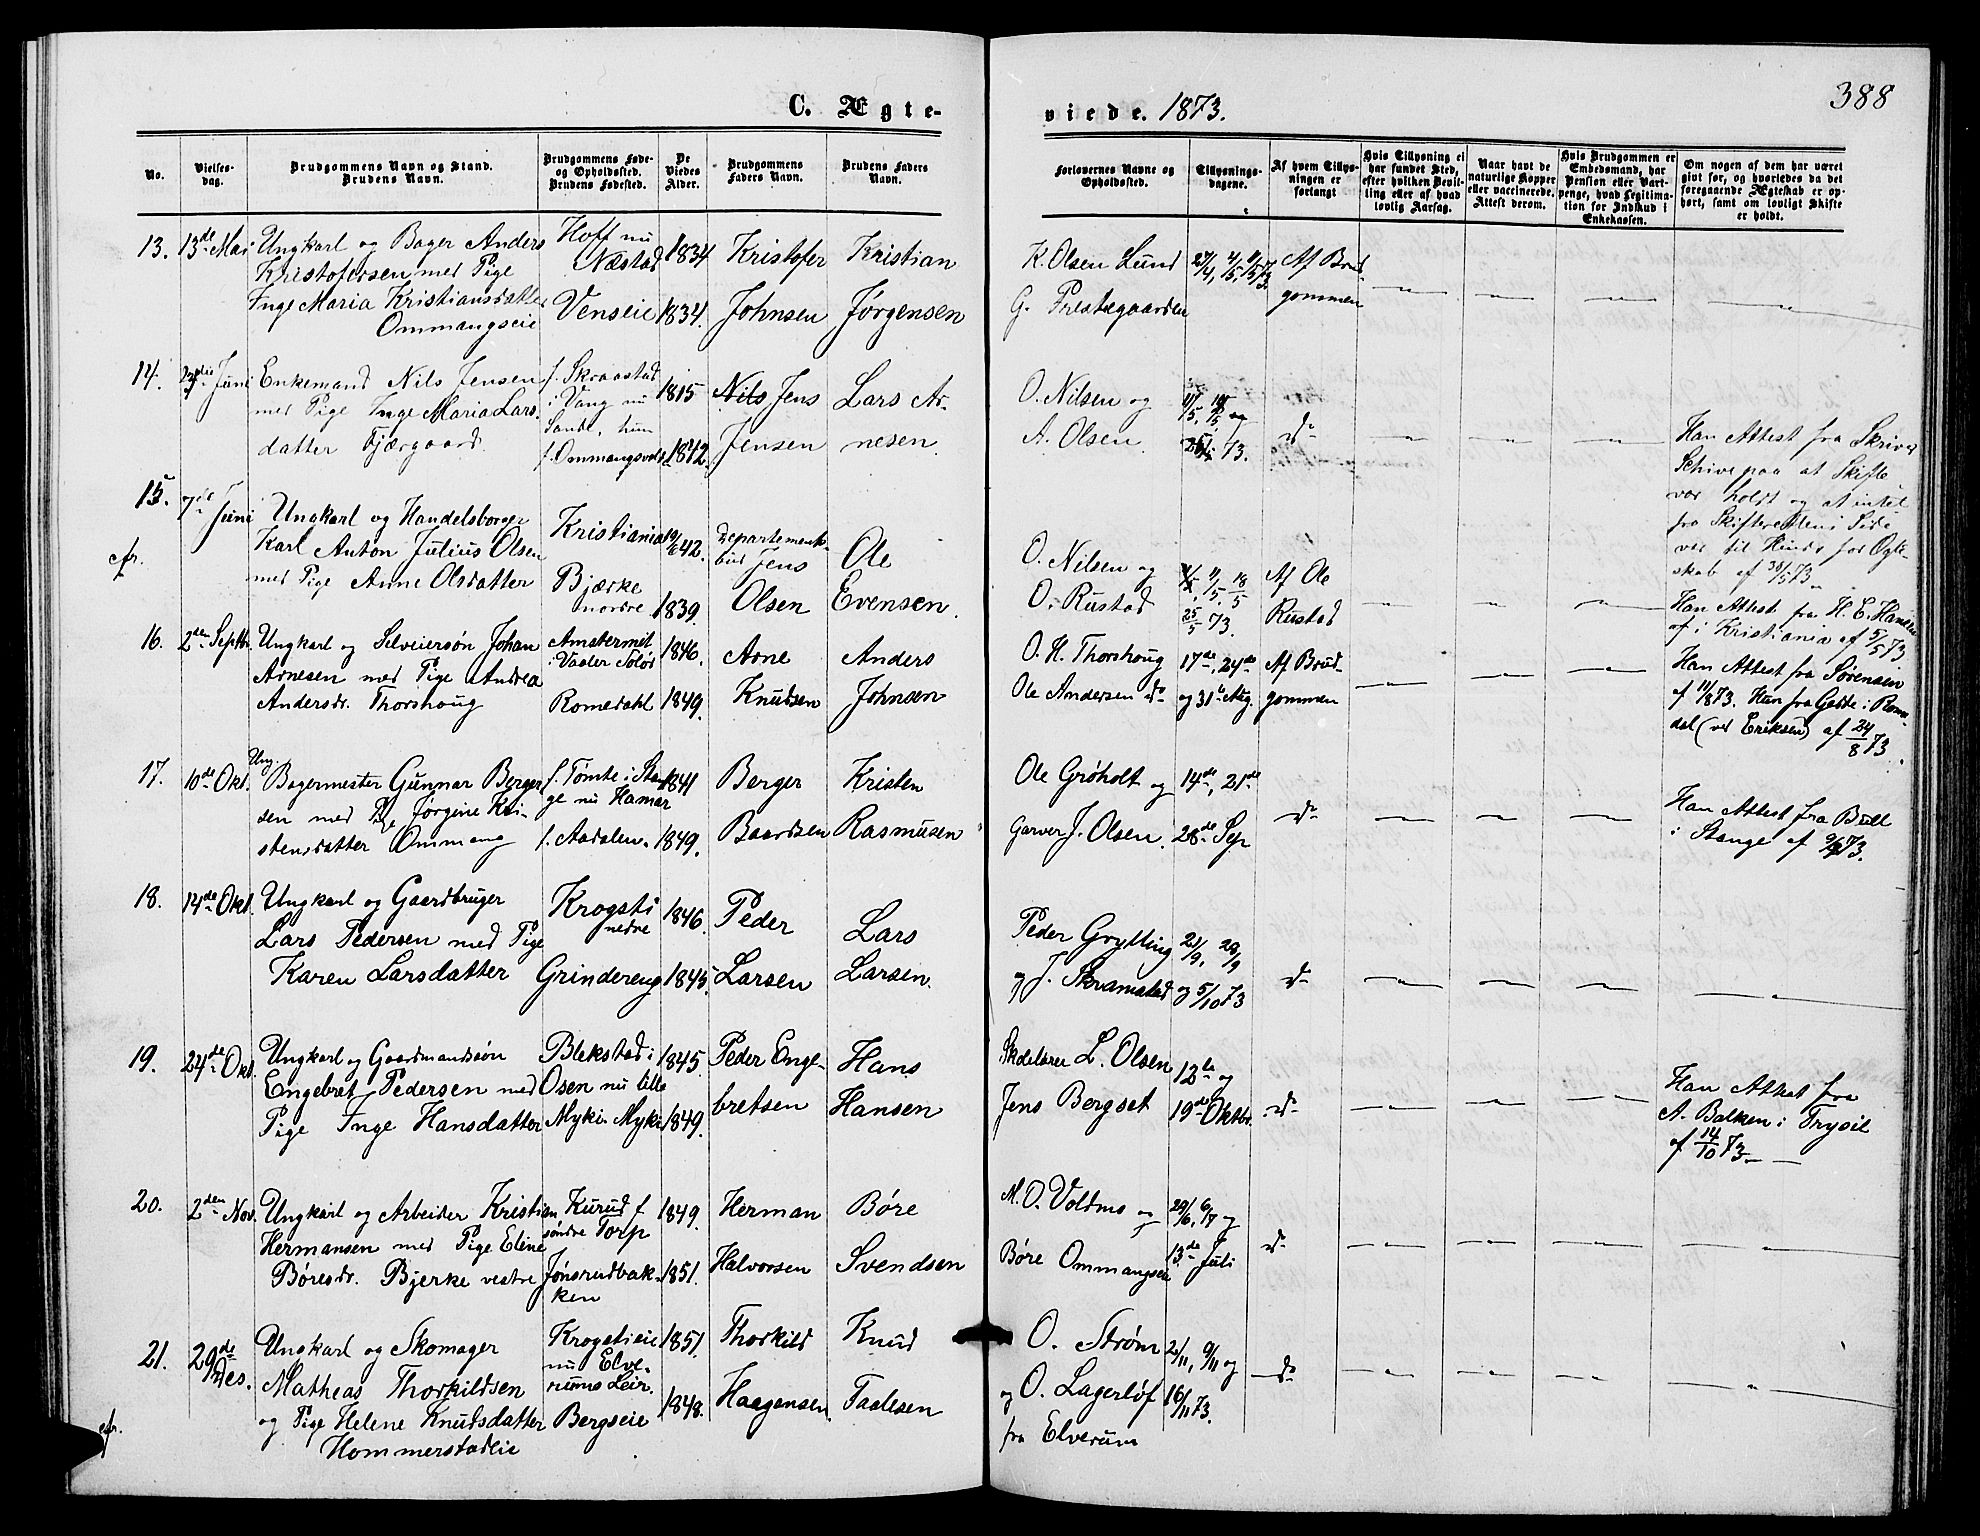 388
C. Ægte-
viede. 1873.
No.
Vielses-
dag.
Brudgommens Navn og Stand.
Brudens Navn.
Brudgommens Føde-
og Opholdssted.
Brudens Fødested.
De
Viedes
Alder.
Brudgommens
Faders Navn.
Brudens Faders
Navn.
Forlovernes Navne og
Opholdssted.
Tillysnings-
dagene.
Af hvem Tillys-
ningen er
forlangt
Hvis Tillysning ei
har fundet Sted,
efter hvilken Bevil-
ling eller af hvad
lovlig Aarsag.
Naar havt de
naturlige Kopper
eller vaccinerede.
Attest derom.
Hvis Brudgommen er
Embedsmand, har
Pension eller Vart-
penge, hvad Legitima-
tion for Indskud i
Enkekassen.
Om nogen af dem har været
gift før, og hvorledes da det
foregaaende Ægteskab er op-
hørt, samt om lovligt Skifte
er holdt.
13. 13de Mai
Ungkarl og Bager Anders
Kristofersen med Pige
Inge Maria Kristiansdatter
Ommangseie
Hoff nu
Næstad
Venseie
1834
1834.
Kristofer
Johnsen
Kristian
Jørgensen
K. Olsen Lund
G. Prestegaarden
27/4, 4/5, 11/5 73.
Af Brud-
gommen
14. Juni
Enkemand Nils Jensen
med Pige Inge Maria Lars-
datter Fjærgaard
f. Skraastad
i Vang nu
Sande, hun
f. Ommangsvold
1815
1842.
Nils Jens
Jensen
Lars Ar-
nesen.
O. Nilsen og
A. Olsen.
og
73.
do
Han Attest fra Skriver
Schive paa at Skifte
var holdt og at intet
fra Skifterettens Side
var til Hinder for Ægte-
skab af 30/5 73
15. 7de Juni
cfr.
Ungkarl og Handelsborger
Karl Anton Julius Olsen
med Pige Anne Olsdatter
Kristiania
Bjærke
nordre
42.
1839.
Departements-
bud Jens
Olsen
Ole
Evensen.
O. Nilsen og
O. Rustad
11/5, 18/5
25/5 73.
Af Ole
Rustad
Han Attest fra H. E. Hansen
i Kristiania af 5/5 73
16. 2den Septbr.
Ungkarl og Selveiersøn Johan
Arnesen med Pige Andrea
Andersdr. Thorshoug
i Vaaler Solør
Romedahl
1846.
1849.
Arne
Knudsen
Anders
Johnsen
O. H. Thorshoug
Ole Andersen do
17de, 24de
og 31te Aug.
Af Brud-
gommen
Han Attest fra Sørensen
af 11/8 73. Hun fra Gjedde i Rome-
dal (ved Eriksen) af 24/8 73.
17. 10de Okt.
Ung.
Bagermester Gunnar Berger-
sen med Pige Jørgine Kri-
stensdatter Ommang
f. Tomte i Stan-
ge nu Hamar
f. Aadalen.
1841
1849.
Berger
Baardsen
Kristen
Rasmusen
Ole Grøholt og
Garver J. Olsen.
14de, 21de
28de Sep
do
Han Attest fra Bull
i Stange af 73.
18. 14de Okt.
Ungkarl og Gaardbruger
Lars Pedersen med Pige
Karen Larsdatter
Krogsti
nedre
Grindereng
1846.
1845.
Peder
Larsen
Lars
Larsen.
Peder Grytting
og J. Skramstad
21/9, 28/9
og 5/10 73
do
19. 24de Okt.
Ungkarl og Gaardmandssøn
Engebret Pedersen med
Pige Inge Hansdatter
Blekstad i
Osen nu lille
Myki. Myki
1845.
1849.
Peder Enge-
bretsen
Hans
Hansen
Skolelærer L. Olsen
Jens Bergset
12te og
19de Oktbr.
do
Han Attest fra
A. Balken i Trysil
af 14/10 73.
20. 2den Nov.
Ungkarl og Arbeider Kristian
Hermansen med Pige Eline
Børesdr. Bjerke vestre
Kurud f.
søndre Torp
Jønsrudbak-
ken
1849.
1851.
Herman
Halvorsen
Børe
Svendsen
M. O. Voldmo og
Børe Ommangseie
29/6, 6/7 og
13de Juli
do
21. 29de Des.
cfr.
Ungkarl og Skomager
Mathias Thorkildsen
og Pige Helene Knudsdatter
Hommerstadeie
Krogstieie
nu Elve-
rums Leir.
Bergseie
1851.
1848.
Thorkild
Haagensen.
Knud
Taalesen
O. Strøm
og O. Lagerløf
fra Elverum
2/11, 9/11 og
16/11 73.
do